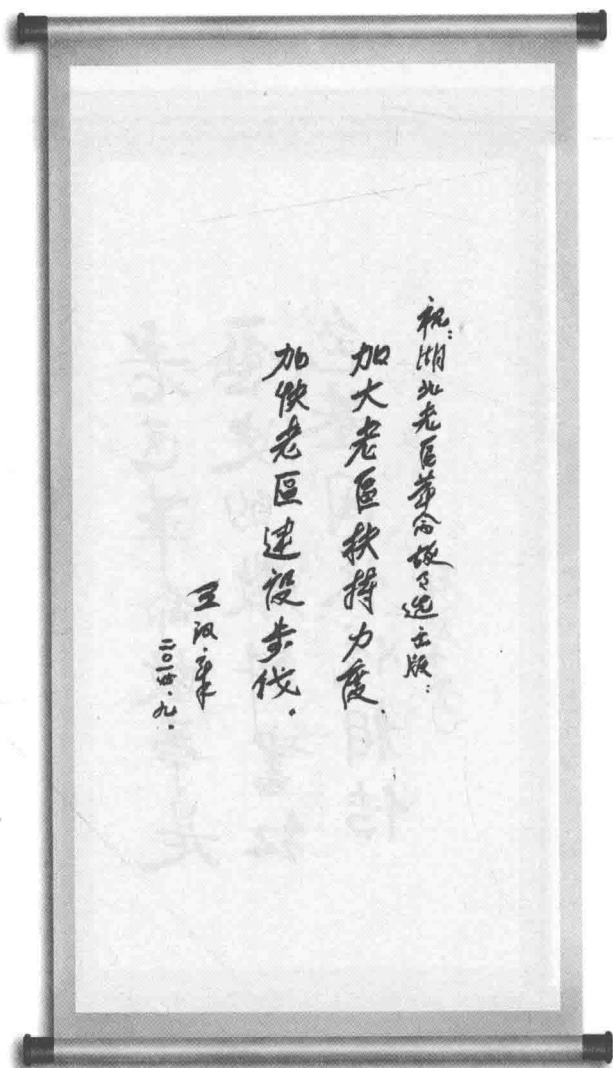 祝:湖北老區革命故事选出版:
加大老區扶持力度.
加快老區建设步伐.
王汉章
二〇一四·九.